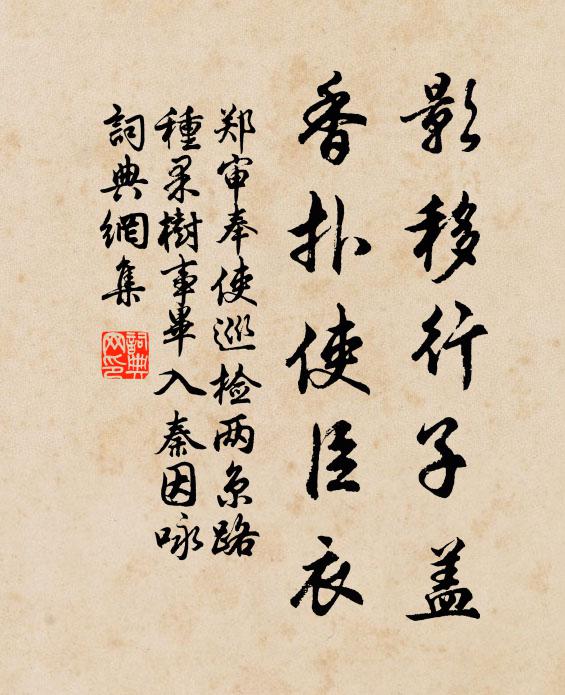 影移行子盖
香扑使臣衣
郑审奉使巡检两京路
種果樹事畢入秦因咏
詞典網集
詞典网印